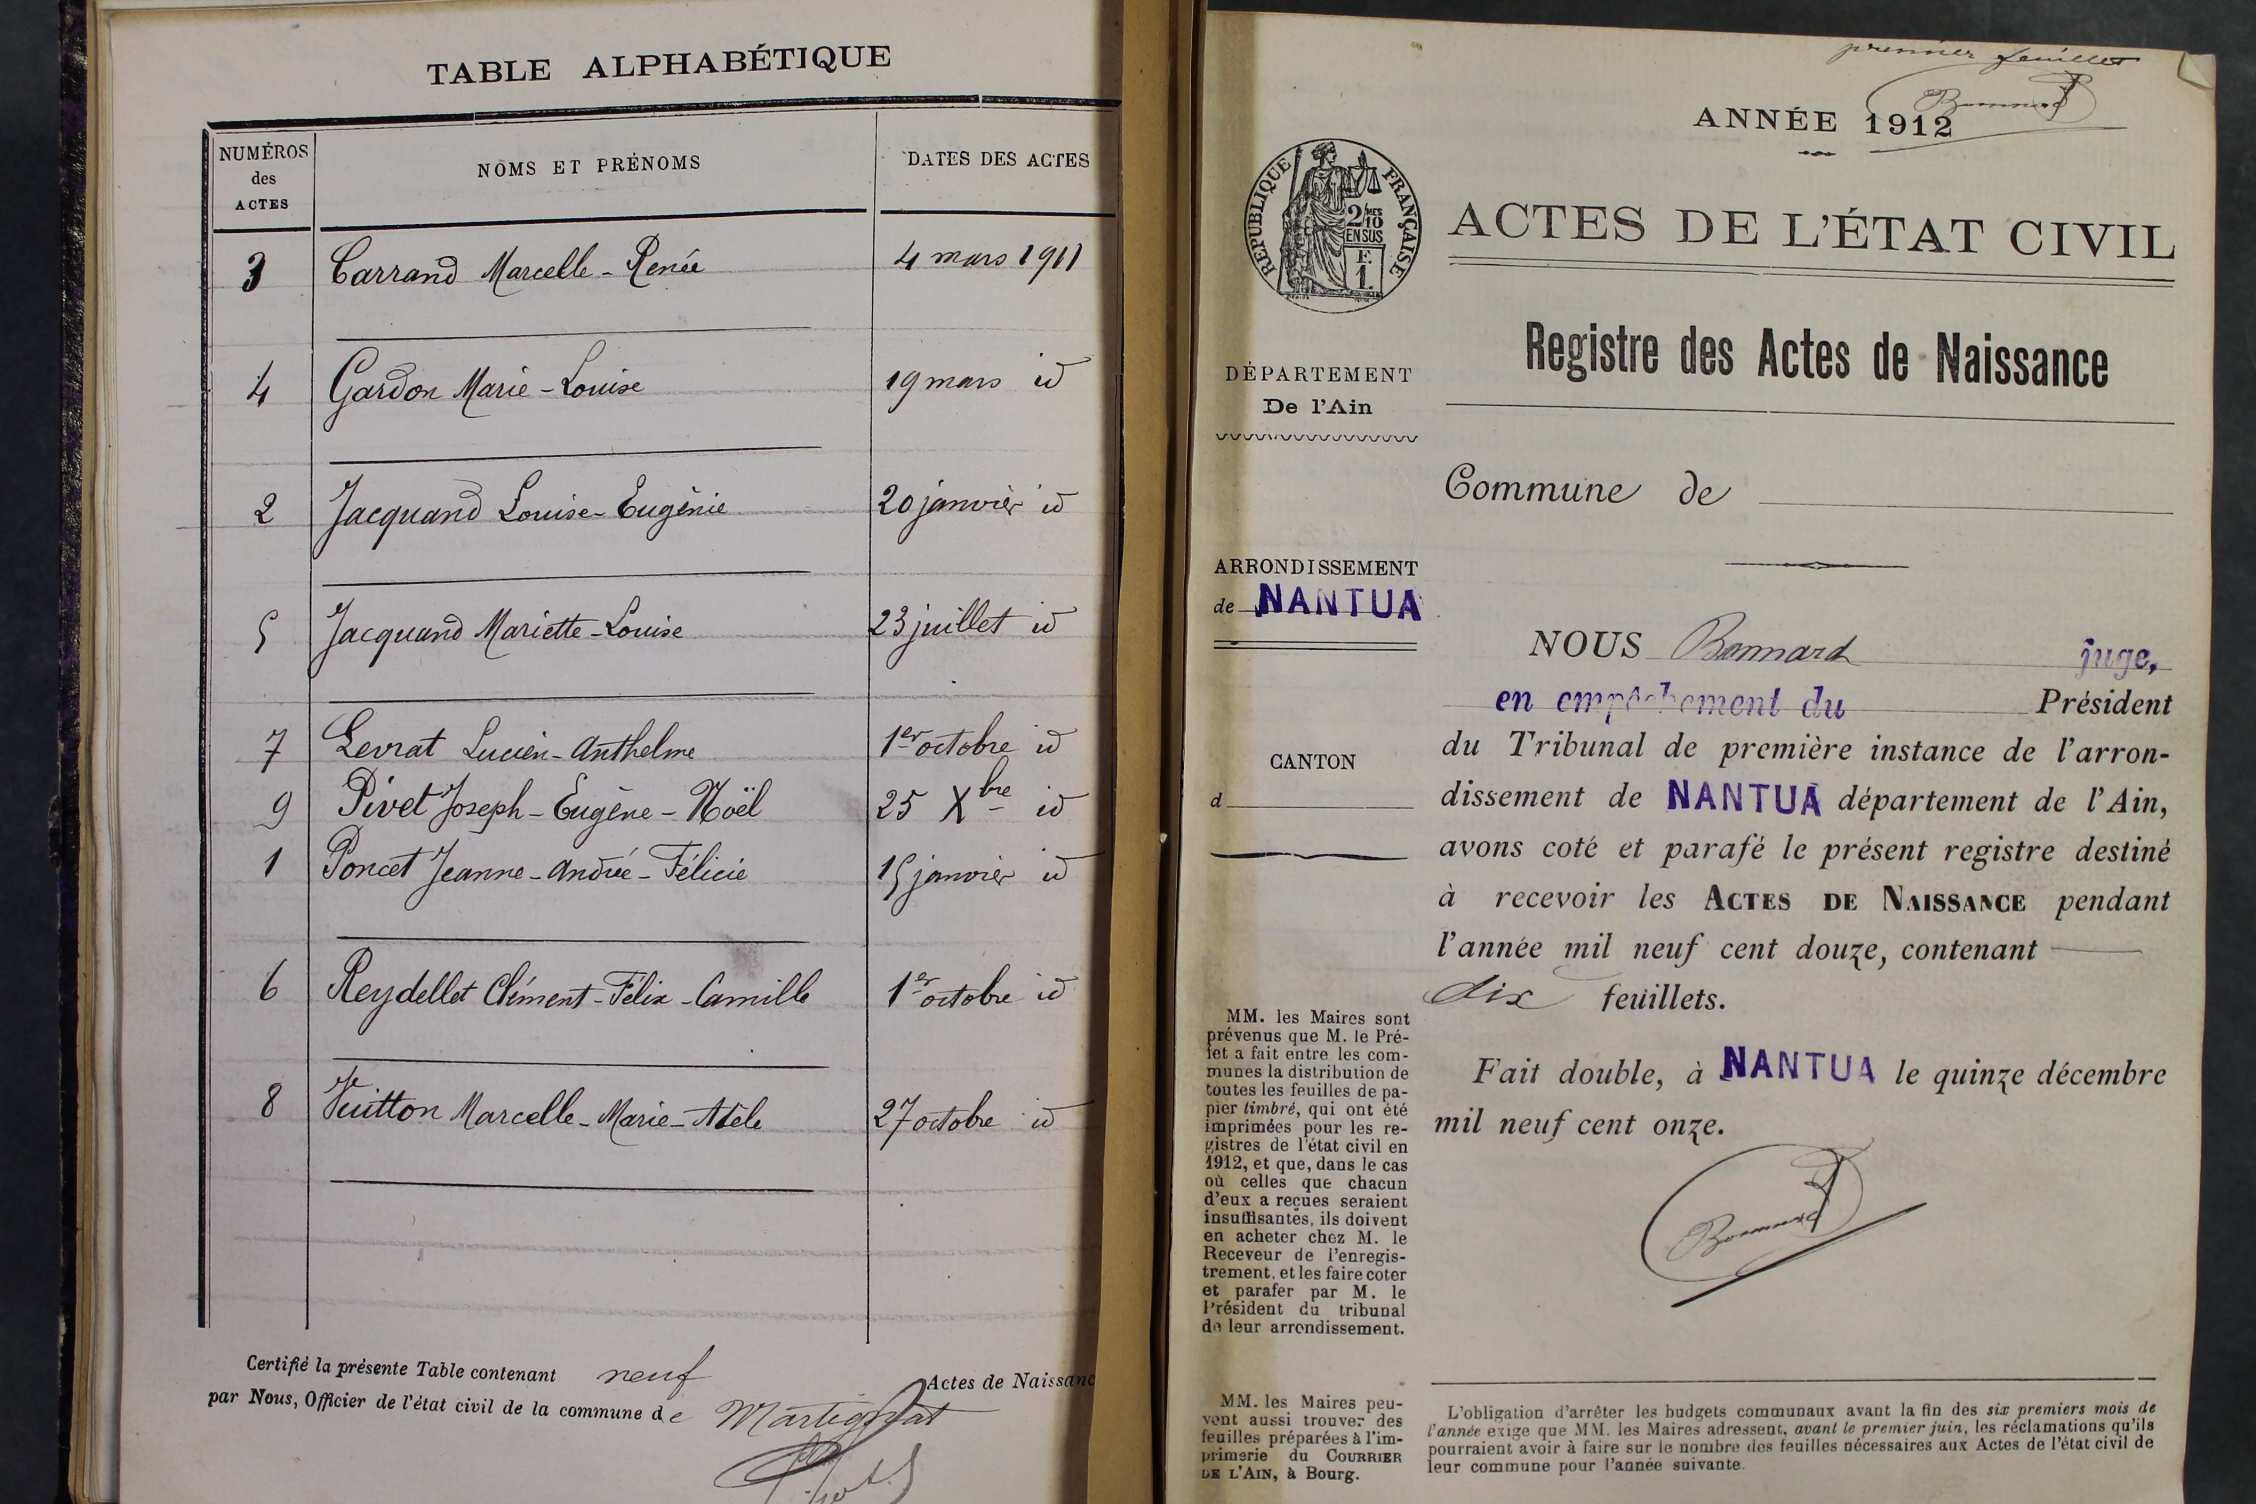 TABLE ALPHABÉTIQUE
NUMÉROS des ACTES
NOMS ET PRÉNOMS
DATES DES ACTES
3 Carrand Marcelle - Renée 4 mars 1911
4 Gardon Marie - Louise 19 mars id
2 Jacquand Louise - Eugénie 20 janvier id
5 Jacquand Mariette - Louise 23 juillet id
7 Levrat Lucien - Anthelme 1er octobre id
9 Pivet Joseph - Eugène - Noël 25 Xbre id
1 Poncet Jeanne - Andrée - Félicie 15 janvier id
6 Reydellet Clément - Félix - Camille 1er octobre id
8 Vuitton Marcelle - Marie - Adèle 27 octobre id
Certifié la présente Table contenant neuf Actes de Naissanc
par Nous, Officier de l'état civil de la commune de Martignat
premier feuillet
Bonnard
ANNÉE 1912
RÉPUBLIQUE FRANÇAISE
2/MES 10 EN SUS
F. 1.
ACTES DE L'ÉTAT CIVIL
Registre des Actes de Naissance
DÉPARTEMENT
De l'Ain
Commune de
ARRONDISSEMENT
de NANTUA
CANTON
d
NOUS Bonnard juge,
en empêchement du Président
du Tribunal de première instance de l'arron-
dissement de NANTUA département de l'Ain,
avons coté et parafé le présent registre destiné
à recevoir les ACTES DE NAISSANCE pendant
l'année mil neuf cent douze, contenant
dix feuillets.
Fait double, à NANTUA le quinze décembre
mil neuf cent onze.
Bonnard
MM. les Maires sont
prévenus que M. le Pré-
fet a fait entre les com-
munes la distribution de
toutes les feuilles de pa-
pier timbré, qui ont été
imprimées pour les re-
gistres de l'état civil en
1912, et que, dans le cas
où celles que chacun
d'eux a reçues seraient
insuffisantes, ils doivent
en acheter chez M. le
Receveur de l'enregis-
trement, et les faire coter
et parafer par M. le
Président du tribunal
de leur arrondissement.
MM. les Maires peu-
vent aussi trouver des
feuilles préparées à l'im-
primerie du COURRIER
DE L'AIN, à Bourg.
L'obligation d'arrêter les budgets communaux avant la fin des six premiers mois de
l'année exige que MM. les Maires adressent, avant le premier juin, les réclamations qu'ils
pourraient avoir à faire sur le nombre des feuilles nécessaires aux Actes de l'état civil de
leur commune pour l'année suivante.